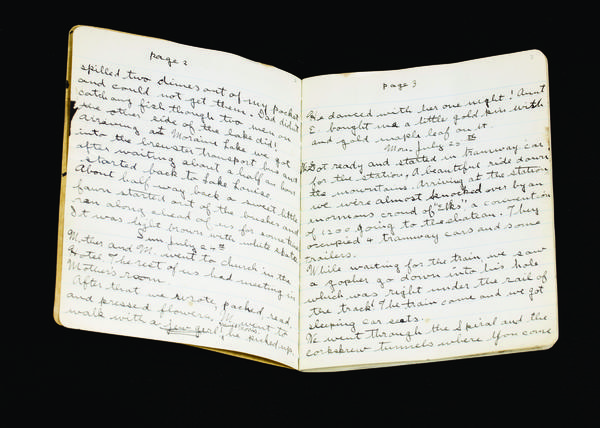 page 2
spilled two dimes out of my pocket
and could not get them. Dad didn't
catch any fish though two men on
the other side of the lake did!
Arriving at Moraine Lake we got
into the brewster transport bus and
after waiting about a half an hour
started back to Lake Louise.
About half way back a sweet little
fawn started out of the bushes and
ran along ahead of us for some time
It was light brown with white spots
Sun July
Mother and M. went to church in the
hotel The rest of us had meeting in
Mother's room.
After that we wrote, packed, read
and pressed flowers. M. went to
walk with a he picked up,
page 3
He danced with her one night! Aunt
E. bought me a little gold pin with
and gold maple leaf on it.
Mon. July 25th
Got ready and started in tramway car
for the station. A beautiful ride down
the mountains. Arriving at the station
we were almost knocked over by an
enormous crowd of "Elks" a convention
of 1200 going to the chateau. They
occupied 4 tramway cars and some
trailers.
While waiting for the train, we saw
a gopher go down into his hole
which was right under the rail of
the track! The train came and we got
sleeping car seats.
We went through the Spiral and the
corkskrew tunnels where you come